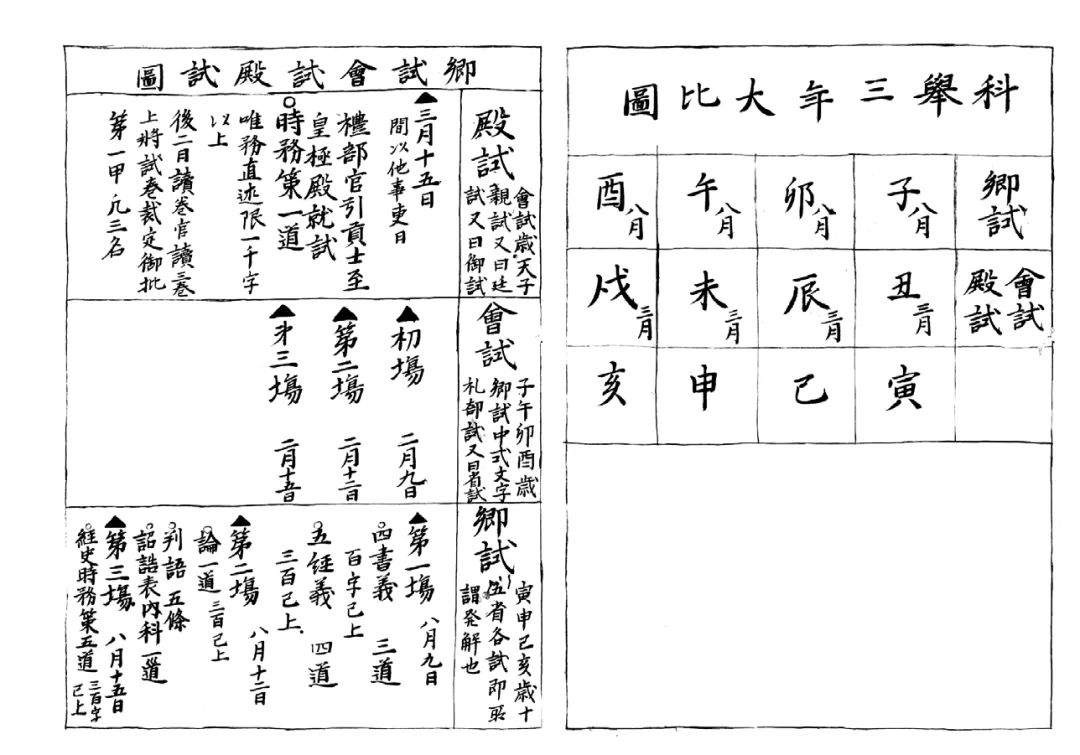 科舉三年大比圖
鄉試
子八月
卯八月
午八月
酉八月
會試
殿試
丑三月
辰三月
未三月
戌三月
寅
巳
申
亥
鄉試會試殿試圖
殿試
會試歲天子
親試又曰廷
試又曰御試
▲三月十五日
間以他事更日
禮部官引貢士至
皇極殿就試
○時務策一道
唯務直述限一千字
以上
後二日讀卷官讀三卷
上將試卷裁定御批
第一甲凡三名
會試
子午卯酉歲
鄉試中式文字
礼部試又曰省試
▲初場 二月九日
▲第二場 二月十二日
▲第三場 二月十五日
鄉試
寅申巳亥歲十
伍省各試即所
謂發解也
▲第一場 八月九日
○四書義 三道
百字已上
○五經義 四道
三百已上
▲第二場 八月十二日
○論一道 三百已上
○判語五條
○詔誥表內科一道
▲第三場 八月十五日
○經史時務策五道 三百字已上